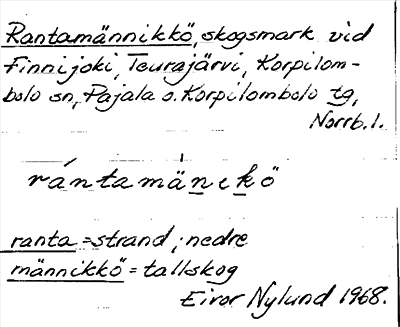 Rantamännikkö, skogsmark vid
Finnijoki, Teurajärvi, Korpilom-
bolo sn, Pajala o. Korpilombolo tg,
Norrb. l.
rántamänikö
ranta = strand; nedre
männikkö = tallskog
Eivor Nylund 1968.